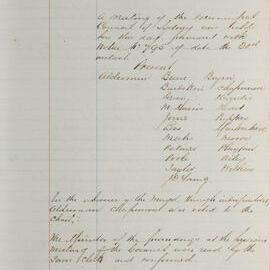 A meeting of the Municipal
Council of Sydney was held
on this day pursuant with
Notice No 795 of date the 22nd
instant
Present
Aldermen Beare Byrne
Chapman
Green
W. Harris Hart
Jones Kippax
Lees
Meeks Moore
Palmer Playfair
Poole Riley
Taylor Withers
Young
In the absence of the Mayor through indisposition,
Alderman Chapman was voted to the
Chair.
The Minutes of the proceedings at the previous
meeting of the Council were read by the
Town Clerk and confirmed.